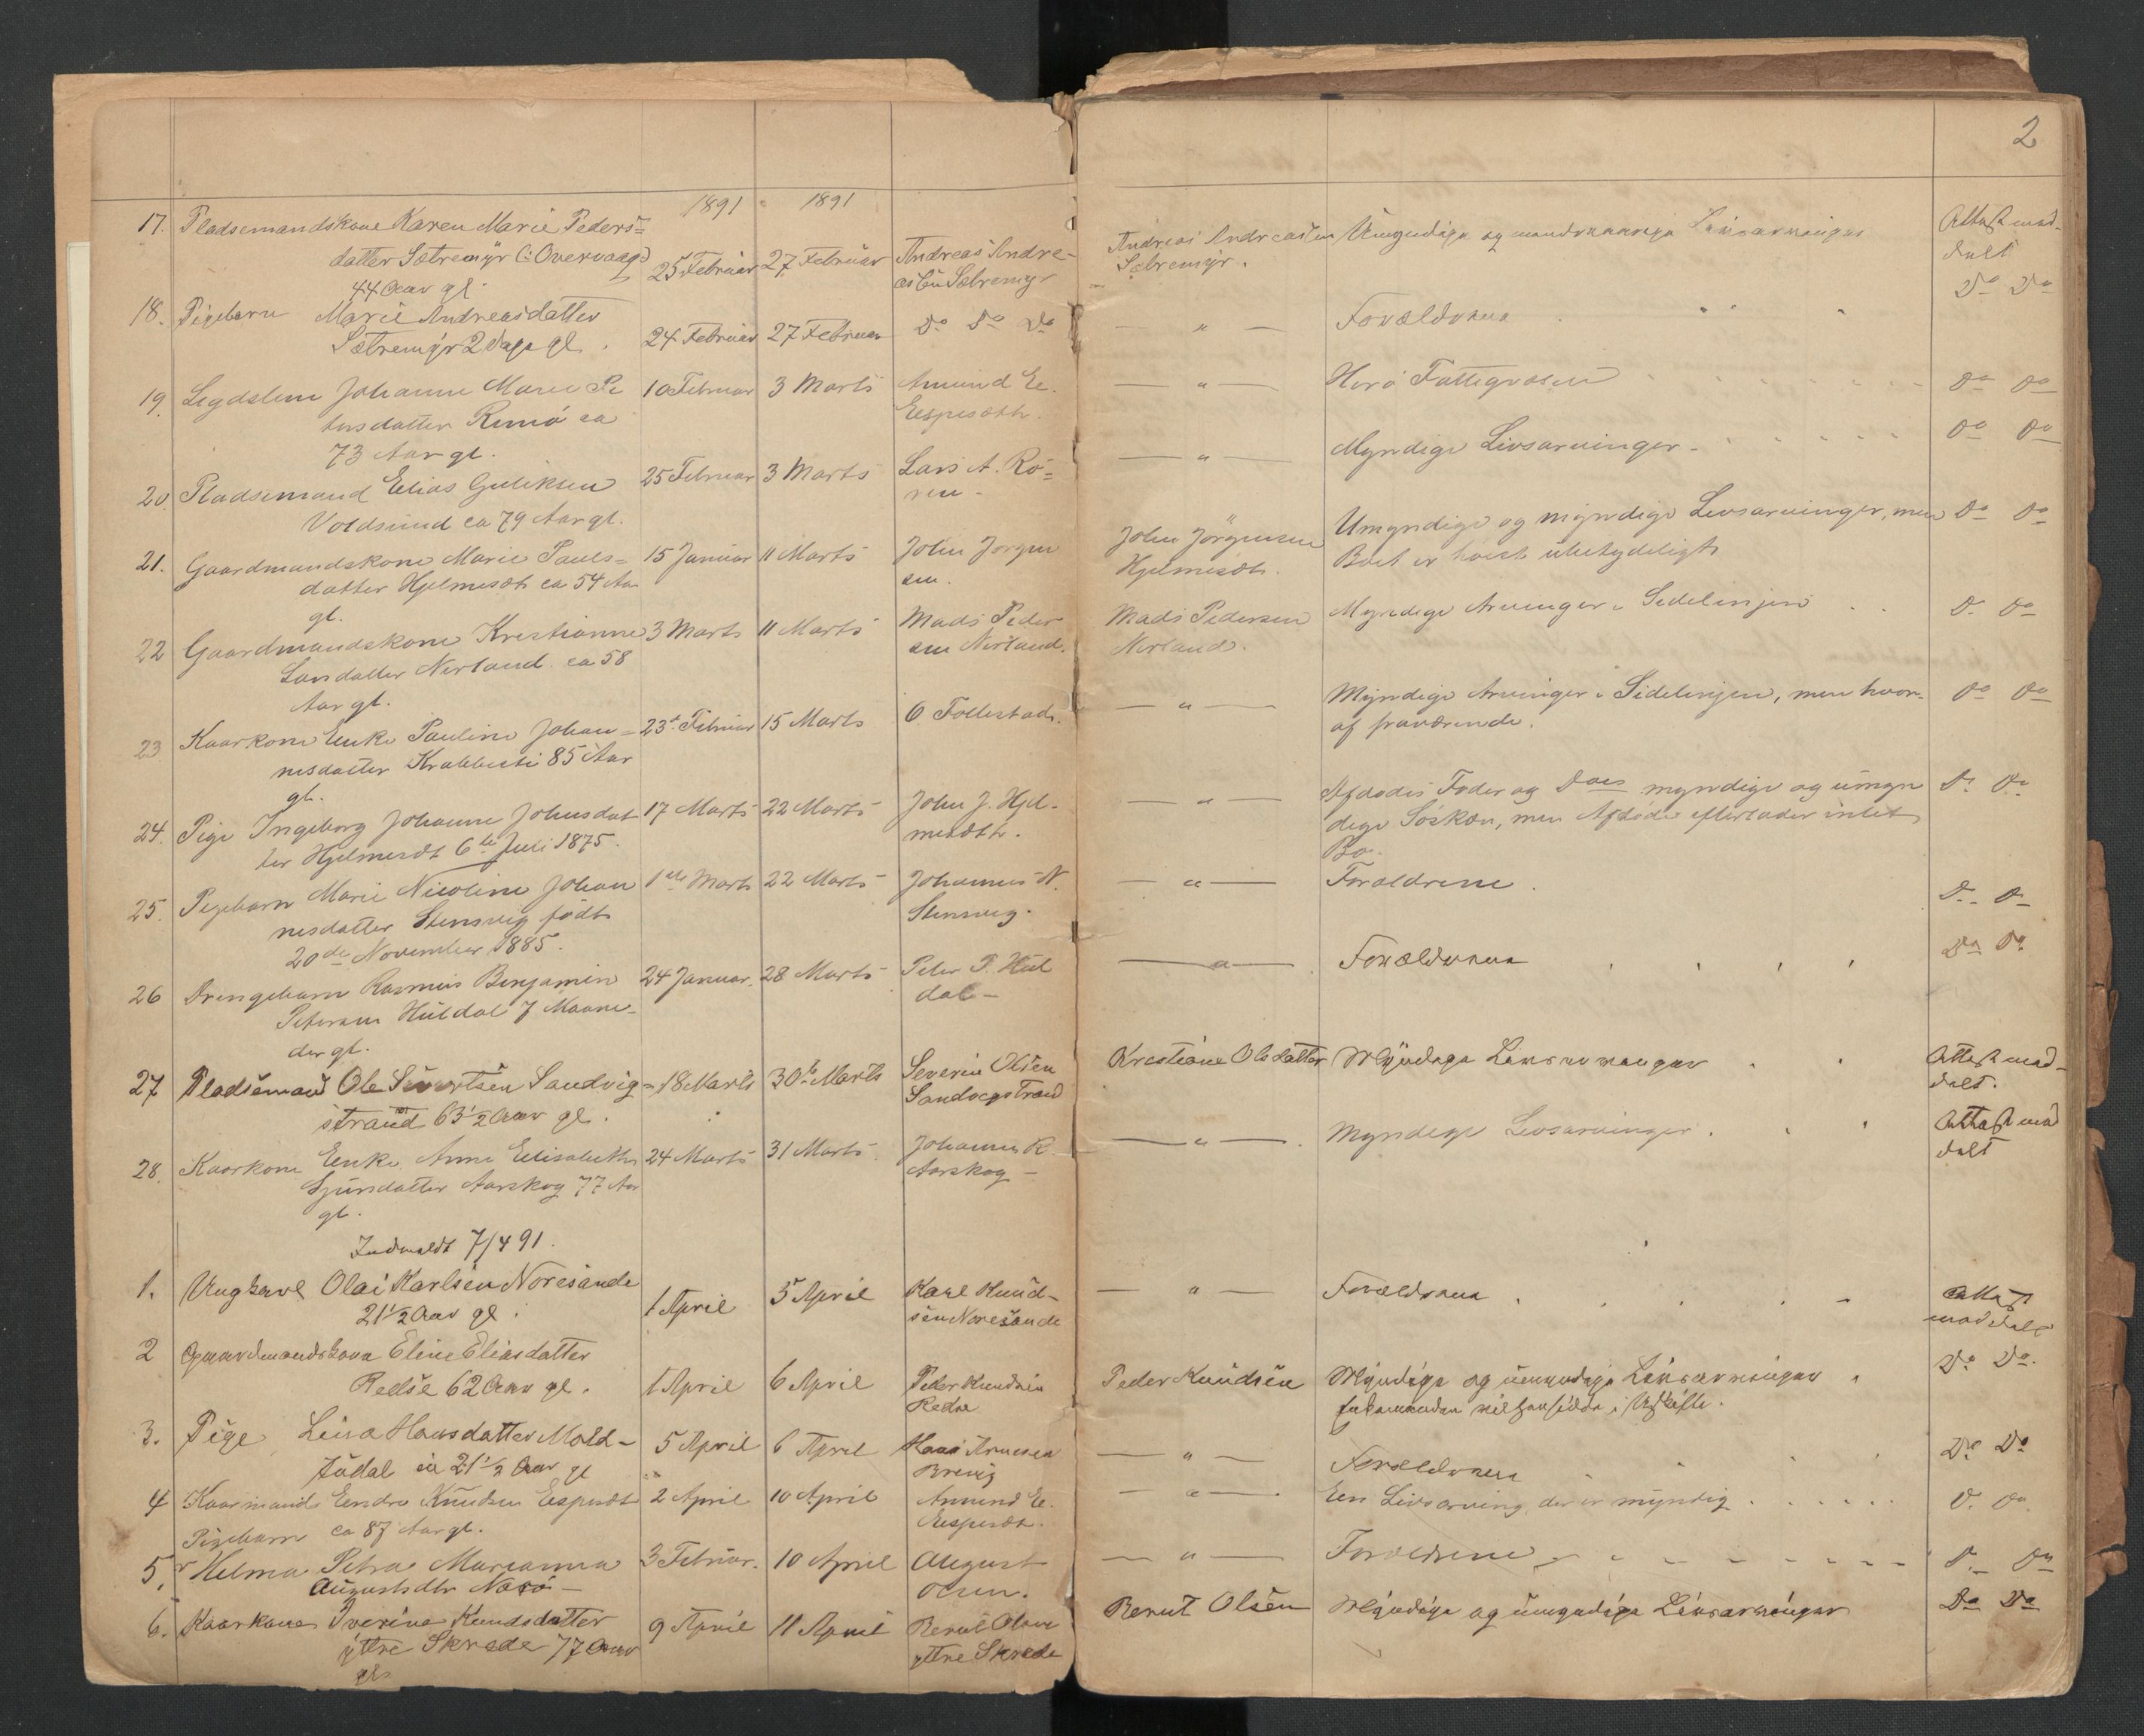 2
1891 1891
17. Pladsemandskone Karen Marie Peders=
datter Sætremyr (: Overvaag)
44 Aar gl. 25 Februar 27 Februar Andreas Andre-
asen Sætremyr
Andreas Andreasen Umyndige og Livsarvinger Attest med-
Sætremyr. delt
18. Pigebarn Marie Andreasdatter
Sætremyr 2 Dage gl. 24 Februar 27 Februar Do Do Do — " — Forældrene Do Do
19. Legdslem Johanne Marie Pe 10 Februar 3 Marts Amund E. — " — Herö Fattigvæsen Do Do
tersdatter Remö ca Espesæth.
73 Aar gl.
20. Pladsemand Elias Guliksen 25 Februar 3 Marts Lars A. Rö= — " — Myndige Livsarvinger Do Do
Voldsund ca 79 Aar gl. ren -
21. Gaardmandskone Marie Pauls= 15 Januar 11 Marts John Jorgen John Jörgensen Umyndige og myndige Livsarvinger, men Do Do
datter Hjelmesæt ca 54 Aar sen. Hjelmesæt. Boet er höist ubetydeligt
gl.
22 Gaardmandskone Kristianne 3 Marts 11 Marts Mads Peder Mads Pedersen Myndige Arvinger i Sidelinjen Do Do
Larsdatter Nerland ca 58 sen Nerland. Nerland.
Aar gl.
23 Kaarkone Enke Pauline Johan= 23de Februar 15 Marts O Tollestad. — " — Myndige Arvinger i Sidelinjen, men hvor- Do Do
nesdatter Krabbesti 85 Aar af fraværende.
gl.
24. Pige Ingeborg Johanne Johnsdat 17 Marts 22 Marts John J. Hjel- — " — Afdødes Fader og Does myndige og umyn Do Do
ter Hjelmesæt 6te Juli 1875. mesæth. dige Söskæn, men Afdöde efterlader intet
Bo.
25. Pigebarn Marie Nicoline Johan 1ste Marts 22 Marts Johannes N. — " — Forældrene. Do Do
nesdatter Stensvig födt Stensvig.
20de November 1885.
26 Drengebarn Rasmus Benjamin 24 Januar. 28 Marts Peter P. Hul — " — Forældrene Do Do
Petersen Huldal 7 Maane- dal -
der gl.
27 Pladsemand Ole Sivertsen Sandvig- 18 Marts 30te Marts Severin Olsen Kristiane Olsdatter Myndige Livsarvinger Attest med-
strand 63 1/2 Aar gl. Sandvigstrand delt.
28. Kaarkone Enke Anne Elisabeth 24 Marts 31 Marts. Johannes R — " — Myndige Livsarvinger. Attest med
Sjursdatter Aarskog 77 Aar Aarskog - delt
gl.
Indmeldt 7/4 91.
1. Ungkarl Olai Karlsen Noresande
21 1/2 Aar gl. 1 April 5 April Karl Knud- — " — Forældrene Attest
sen Noresande meddelt
2 Gaardmandskone Eline Eliasdatter
Redse 62 Aar gl. 1 April 6 April Peder Knudsen Peder Knudsen Myndige og umyndige Livsarvinger Do Do.
Redse i Uskifte.
3. Pige Lina Hansdatter Mold-
tudal ca 21 1/2 Aar gl 5 April 6 April Hans — " — Forældrene Do Do
4 Kaarmand Endre Knudsen Espesæt 2 April 10 April Amund E. — " — Een Livsarving, der er myndig Do Do
ca 87 Aar gl. Espesæt.
5. Pigebarn Helma Petra Marianna 3 Februar. 10 April August — " — Forældrene Do Do
Augustsdtr Olsen.
6. Kaarkone Iverine Knudsdatter 9 April 11 April Bernt Olsen Bernt Olsen Myndige og umyndige Livsarvinger Do Do
yttre Skrede 77 Aar yttre Skrede
gl.